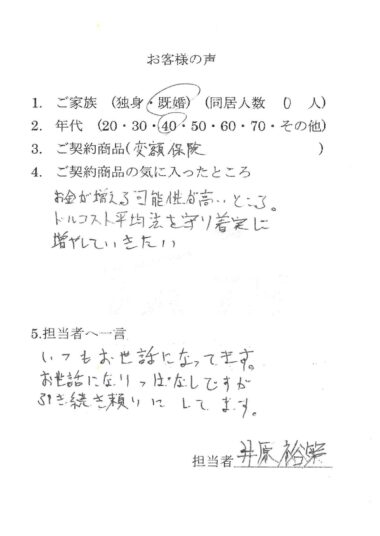 お客様の声
1. ご家族 (独身・既婚) (同居人数 0 人)
2. 年代 (20・30・40・50・60・70・その他)
3. ご契約商品(変額保険 )
4. ご契約商品の気に入ったところ
お金が増える可能性が高いところ。
ドルコスト平均法を守り着実に
増やしていきたい
5.担当者へ一言
いつもお世話になってます。
お世話になりっぱなしですが
引き続き頼りにしてます。
担当者 井原 裕